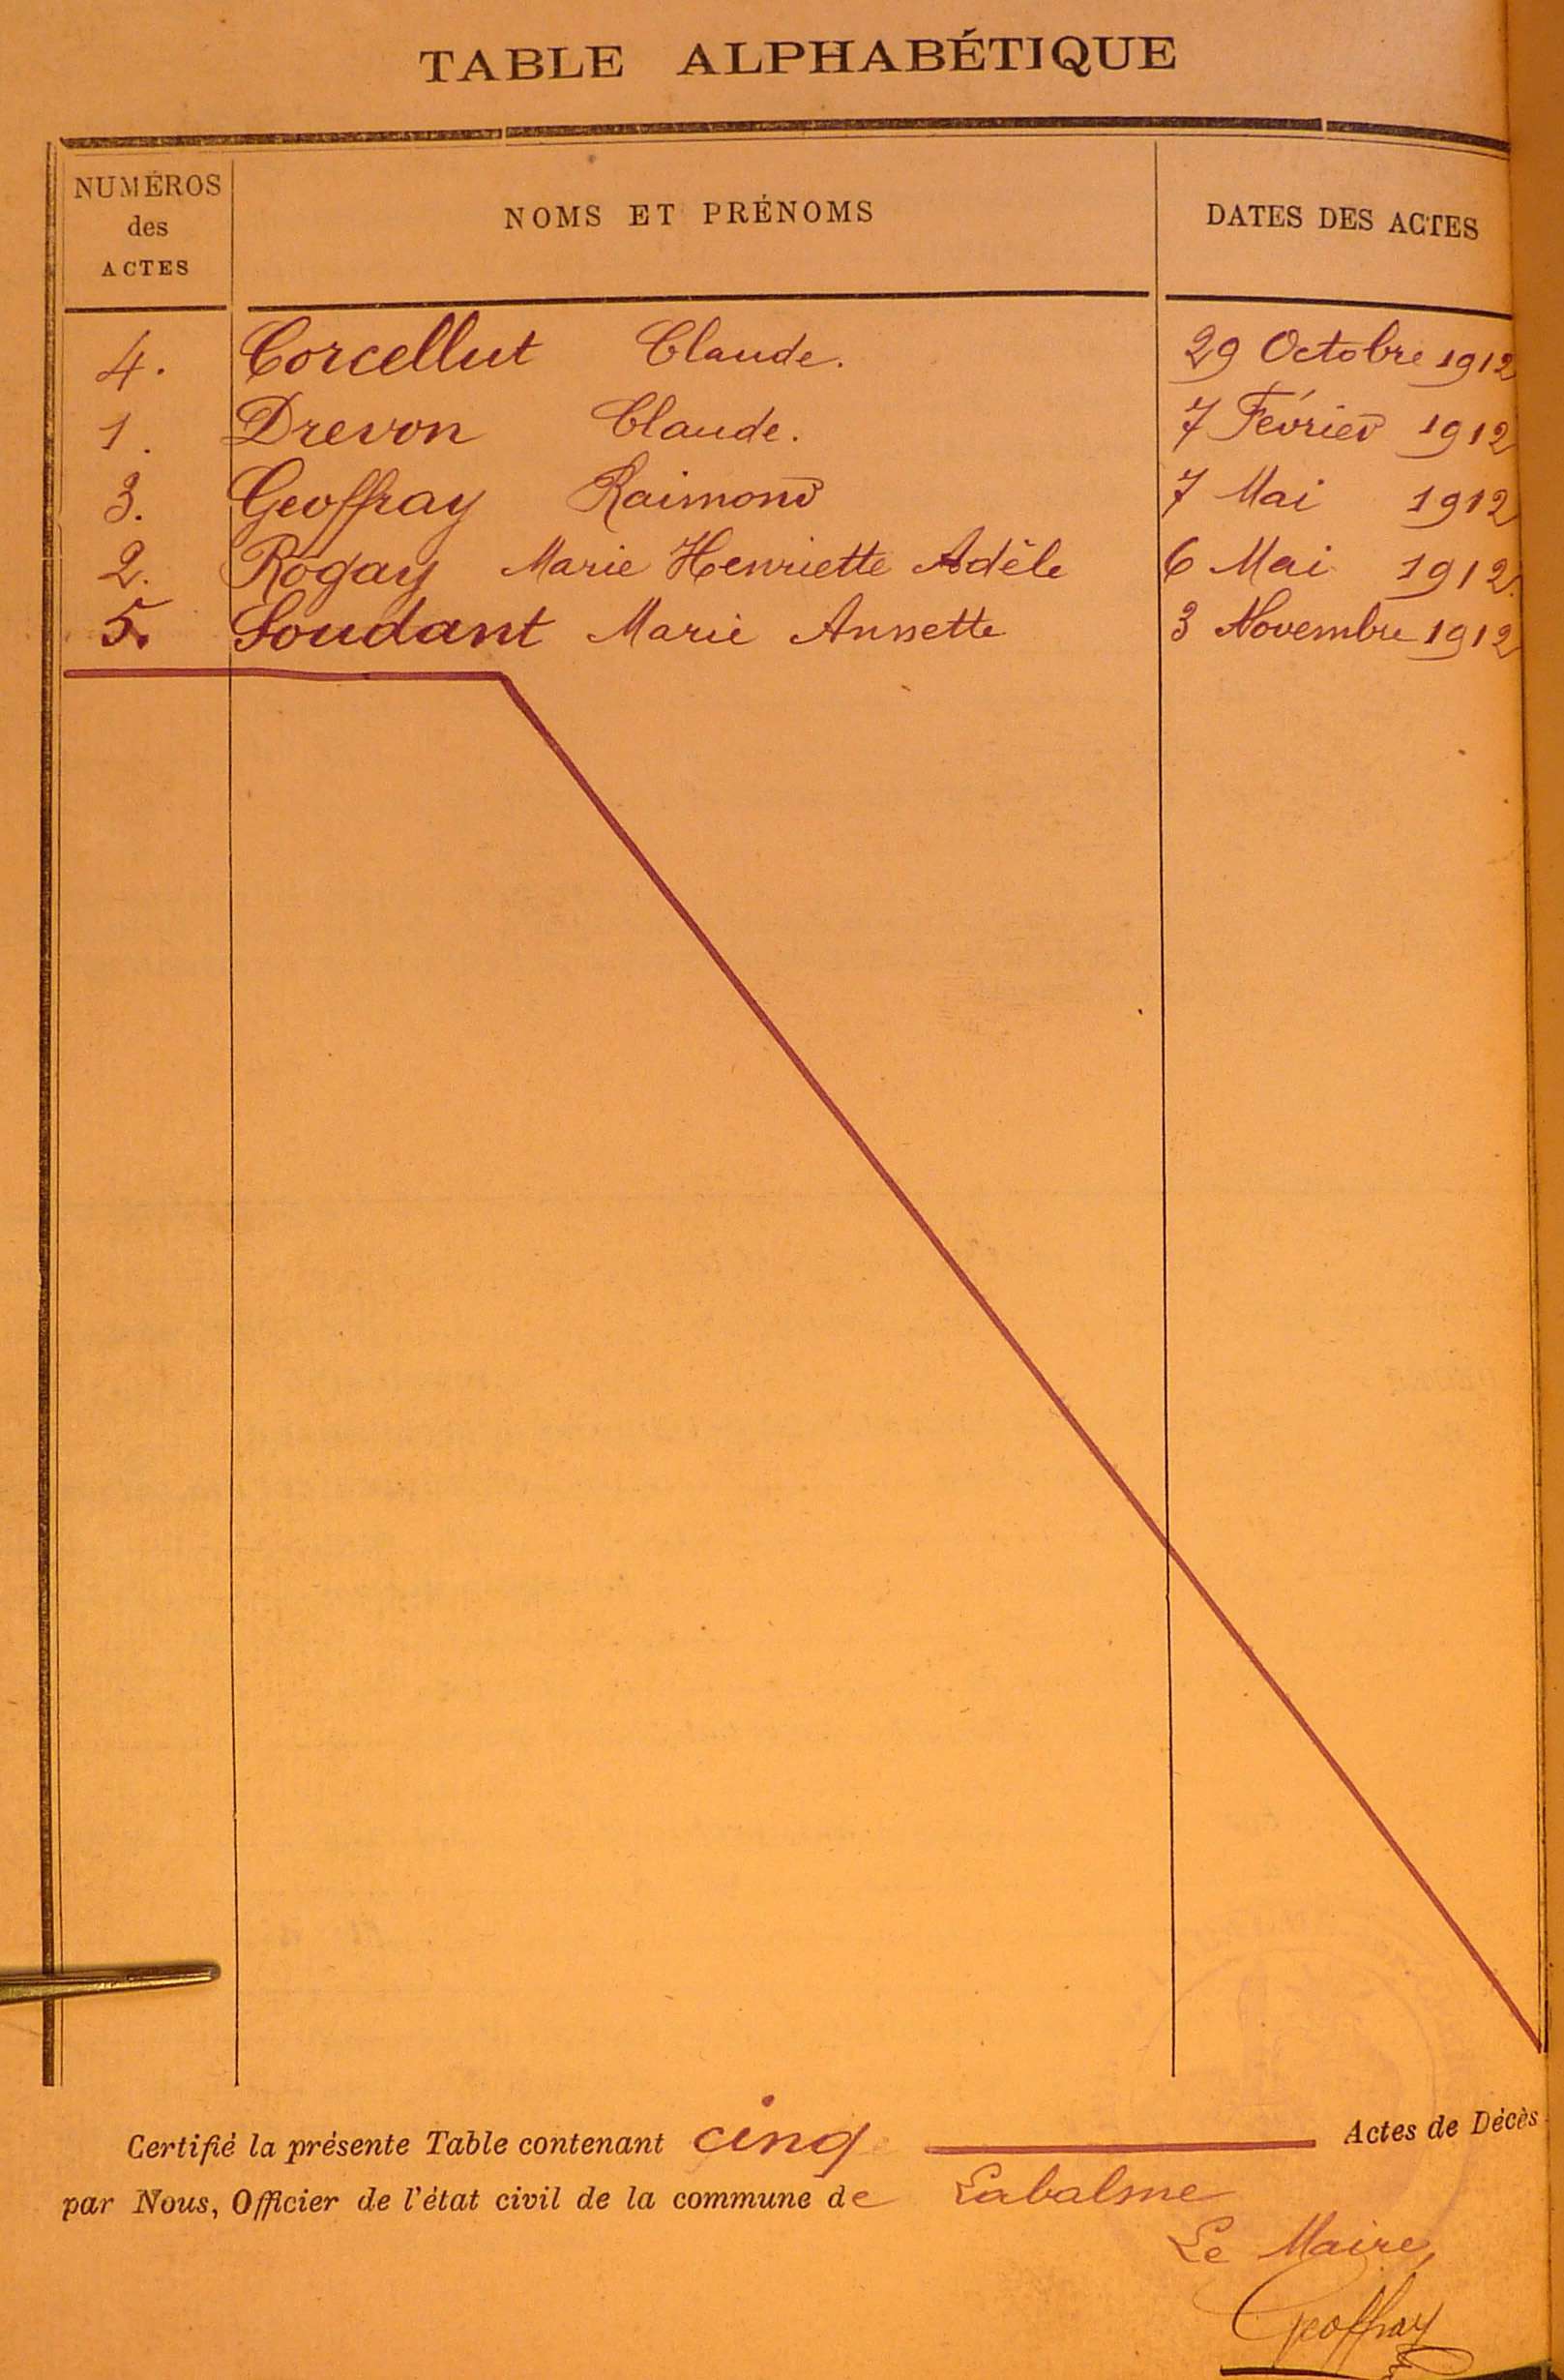 TABLE ALPHABÉTIQUE
NUMÉROS des ACTES NOMS ET PRÉNOMS DATES DES ACTES
4. Corcellut Claude. 29 Octobre 1912
1. Drevon Claude. 7 Février 1912
3. Geoffray Raimond 7 Mai 1912
2. Rogay Marie Henriette Adèle 6 Mai 1912.
5. Soudant Marie Annette 3 Novembre 1912
Certifié la présente Table contenant cinq Actes de Décès
par Nous, Officier de l'état civil de la commune de Labalme
Le Maire,
Geoffray